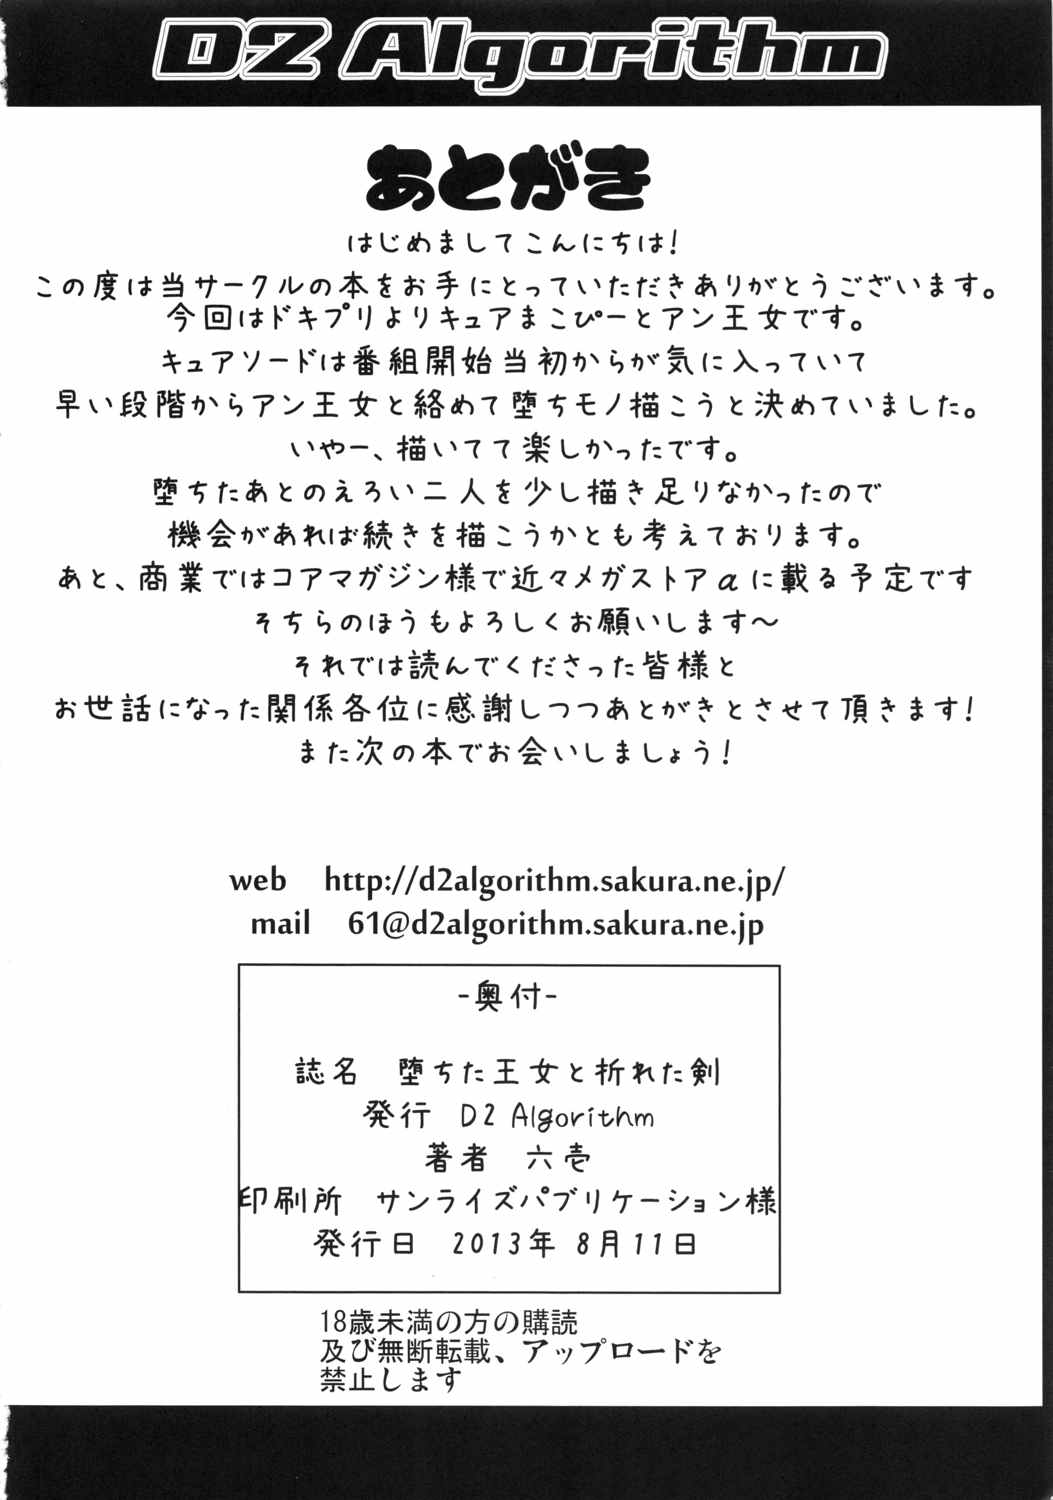 D2 Algorithm
あとがき
はじめましてこんにちは!
この度は当サークルの本をお手にとっていただきありがとうございます。
今回はドキプリよりキュアまこぴーとアン王女です。
キュアソードは番組開始当初からが気に入っていて
早い段階からアン王女と絡めて堕ちモノ描こうと決めていました。
いやー、描いてて楽しかったです。
堕ちたあとのえろい二人を少し描き足りなかったので
機会があれば続きを描こうかとも考えております。
あと、商業ではコアマガジン様で近々メガストアαに載る予定です
そちらのほうもよろしくお願いします〜
それでは読んでくださった皆様と
お世話になった関係各位に感謝しつつあとがきとさせて頂きます!
また次の本でお会いしましょう!
web http://d2algorithm.sakura.ne.jp/
mail 61@d2algorithm.sakura.ne.jp
-奥付-
誌名 堕ちた王女と折れた剣
発行 D2 Algorithm
著者 六壱
印刷所 サンライズパブリケーション様
発行日 2013年 8月11日
18歳未満の方の購読
及び無断転載、アップロードを
禁止します